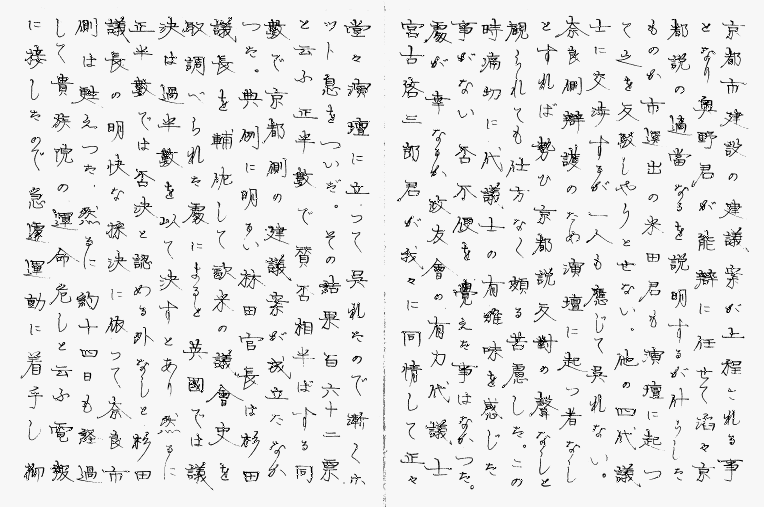 京都市建設の建議案が上程される事
となり奥野君が能辯に任せて滔々京
都説の適當なるを説明するが什うした
ものか市選出の米田君も演壇に起つ
て之を反駁しやうとせない。他の四代議
士に交渉するが一人も應じて呉れない。
奈良側辯護のため演壇に起つ者なし
とすれば勢ひ京都説反對の聲なしと
観られても仕方なく頗る苦慮した。この
時痛切に代議士の有難味を感じた
事がない否不便を覺えた事はなかつた。
處が幸なるかな政友會の有力代議士
宮古啓三郎君が我々に同情して正々
堂々演壇に立つて呉れたので漸くホ
ット息をついだ。その結果百六十二票
と云ふ正半數で賛否相半ばする同
數で京都側の建議案が成立たなか
つた。典例に明るい林田官長は杉田
議長を輔佐して欧米の議會史を
取調べられた處によると英國では議
決は過半數を以て決すとあり然るに
正半數では否決と認める外なしと杉田
議長の明快な採決に依つて奈良市
側は甦えつた。然るに約十四日も経過
して貴族院の運命危しと云ふ電報
に接したので急遽運動に着手し柳